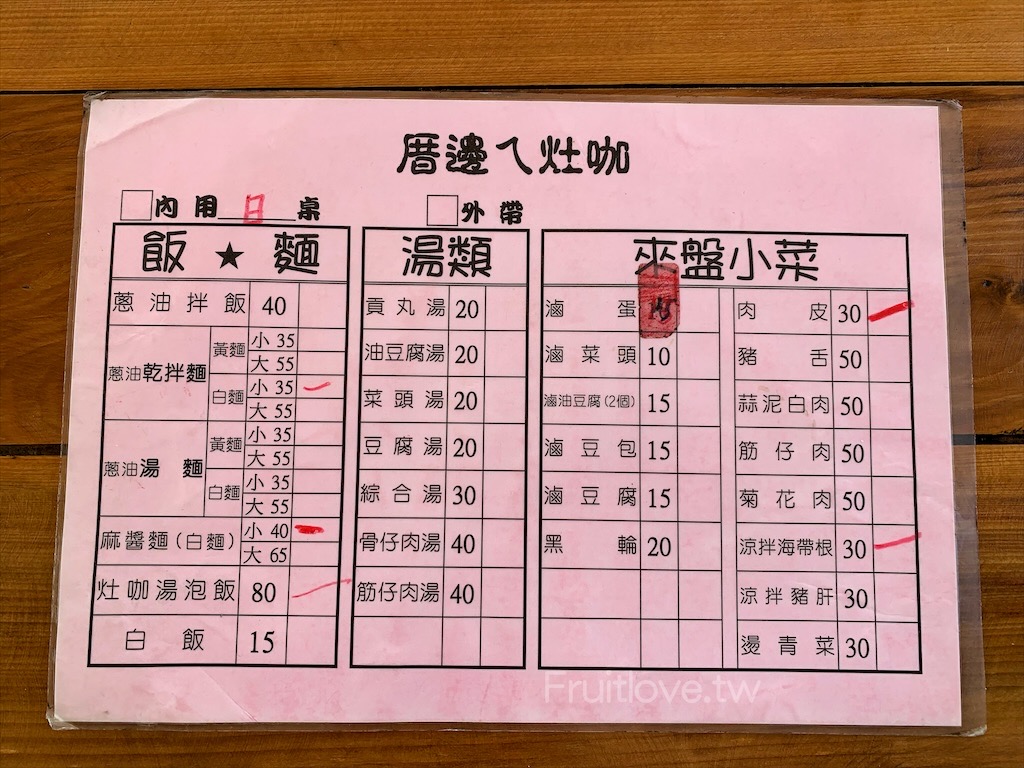 厝邊ㄟ灶咖
內用 日 桌
外帶
飯★麵
蔥油拌飯 40
蔥油乾拌麵 黃麵 小 35
大 55
白麵 小 35
大 55
蔥油湯麵 黃麵 小 35
大 55
白麵 小 35
大 55
麻醬麵(白麵) 小 40
大 65
灶咖湯泡飯 80
白飯 15
湯類
貢丸湯 20
油豆腐湯 20
菜頭湯 20
豆腐湯 20
綜合湯 30
骨仔肉湯 40
筋仔肉湯 40
夾盤小菜
滷蛋
滷菜頭 10
滷油豆腐(2個) 15
滷豆包 15
滷豆腐 15
黑輪 20
肉皮 30
豬舌 50
蒜泥白肉 50
筋仔肉 50
菊花肉 50
涼拌海帶根 30
涼拌豬肝 30
燙青菜 30
Fruitlove.tw